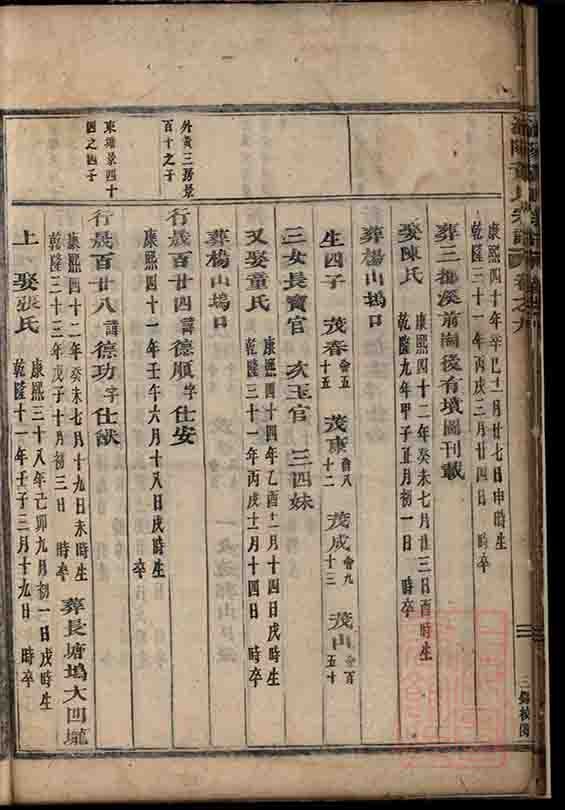 康熙四十年辛巳十二月廿七日申時生
乾隆三十一年丙戌三月廿四日 時卒
葬三 溪前崗後有墳圖刊載
娶陳氏
康熙四十二年癸未七月廿三日酉時生
乾隆九年甲子正月初一日 時卒
葬楊山塢口
生四子 茂春 會五十五 茂康 會八十二 茂成 會九十三 茂山 會百五十
三女長寶官 次玉官 三四妹
又娶童氏
康熙四十四年乙酉十二月十四日戌時生
乾隆三十一年丙戌十二月十四日 時卒
葬楊山塢口
外黃三房景
百十之子
行晟百廿四諱德順字仕安
康熙四十一年壬午六月十八日戌時生
卒
東 景四十
四之四子
行晟百廿八諱德功字仕猷
康熙四十二年癸未七月十九日未時生
乾隆三十三年戊子十月初三日 時卒
葬長塘塢大凹壠
上 娶張氏
康熙三十八年己卯九月初一日戌時生
乾隆十一年壬子三月十九日 時卒